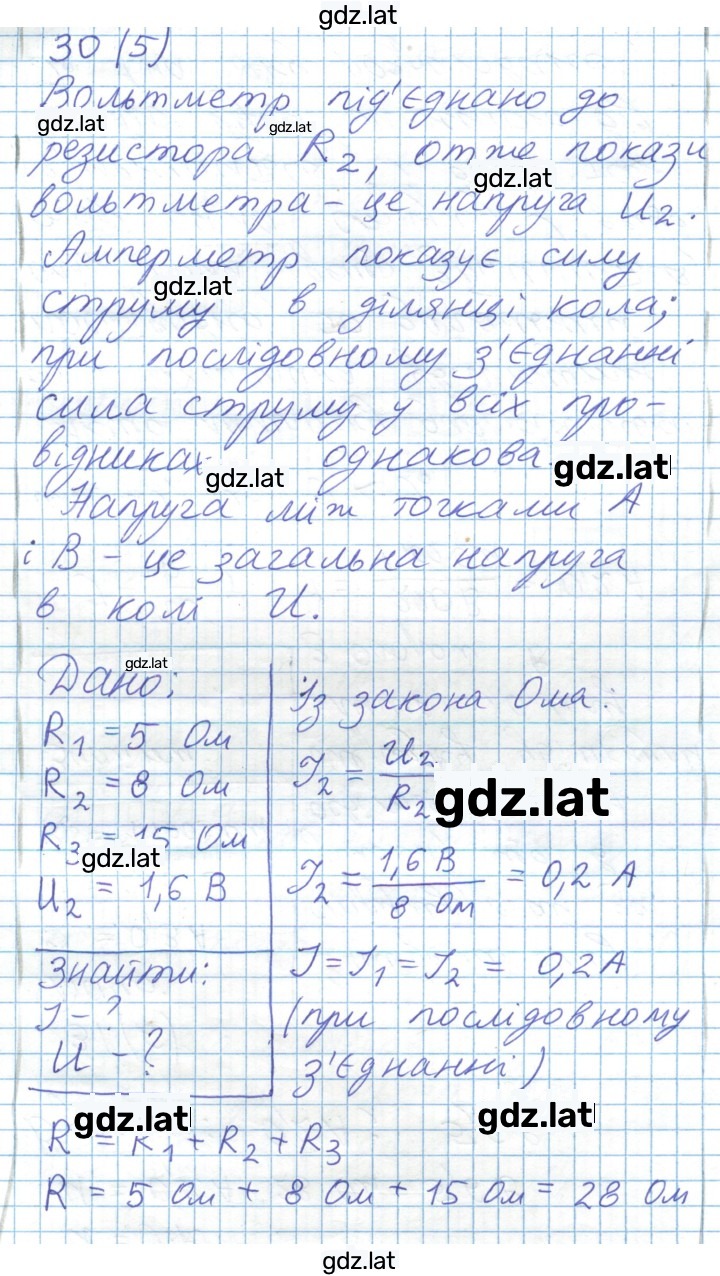 gdz.lat
30 (5)
Вольтметр під'єднано до
gdz.lat gdz.lat
резистора R2, отже покази
gdz.lat
вольтметра – це напруга U2.
Амперметр показує силу
gdz.lat
струму в ділянці кола;
при послідовному з'єднанні
сила струму у всіх про-
відниках однакова gdz.lat
gdz.lat
Напруга між точками А
і В – це загальна напруга
в колі U.
gdz.lat
Дано:
R1 = 5 Ом
R2 = 8 Ом
R3 = 15 Ом
gdz.lat
U2 = 1,6 В
Знайти:
I – ?
U – ?
Із закона Ома:
I2 = U2 / R2
gdz.lat
I2 = 1,6 В / 8 Ом = 0,2 А
I = I1 = I2 = 0,2 А
(при послідовному
з'єднанні)
gdz.lat gdz.lat
R = R1 + R2 + R3
R = 5 Ом + 8 Ом + 15 Ом = 28 Ом
gdz.lat